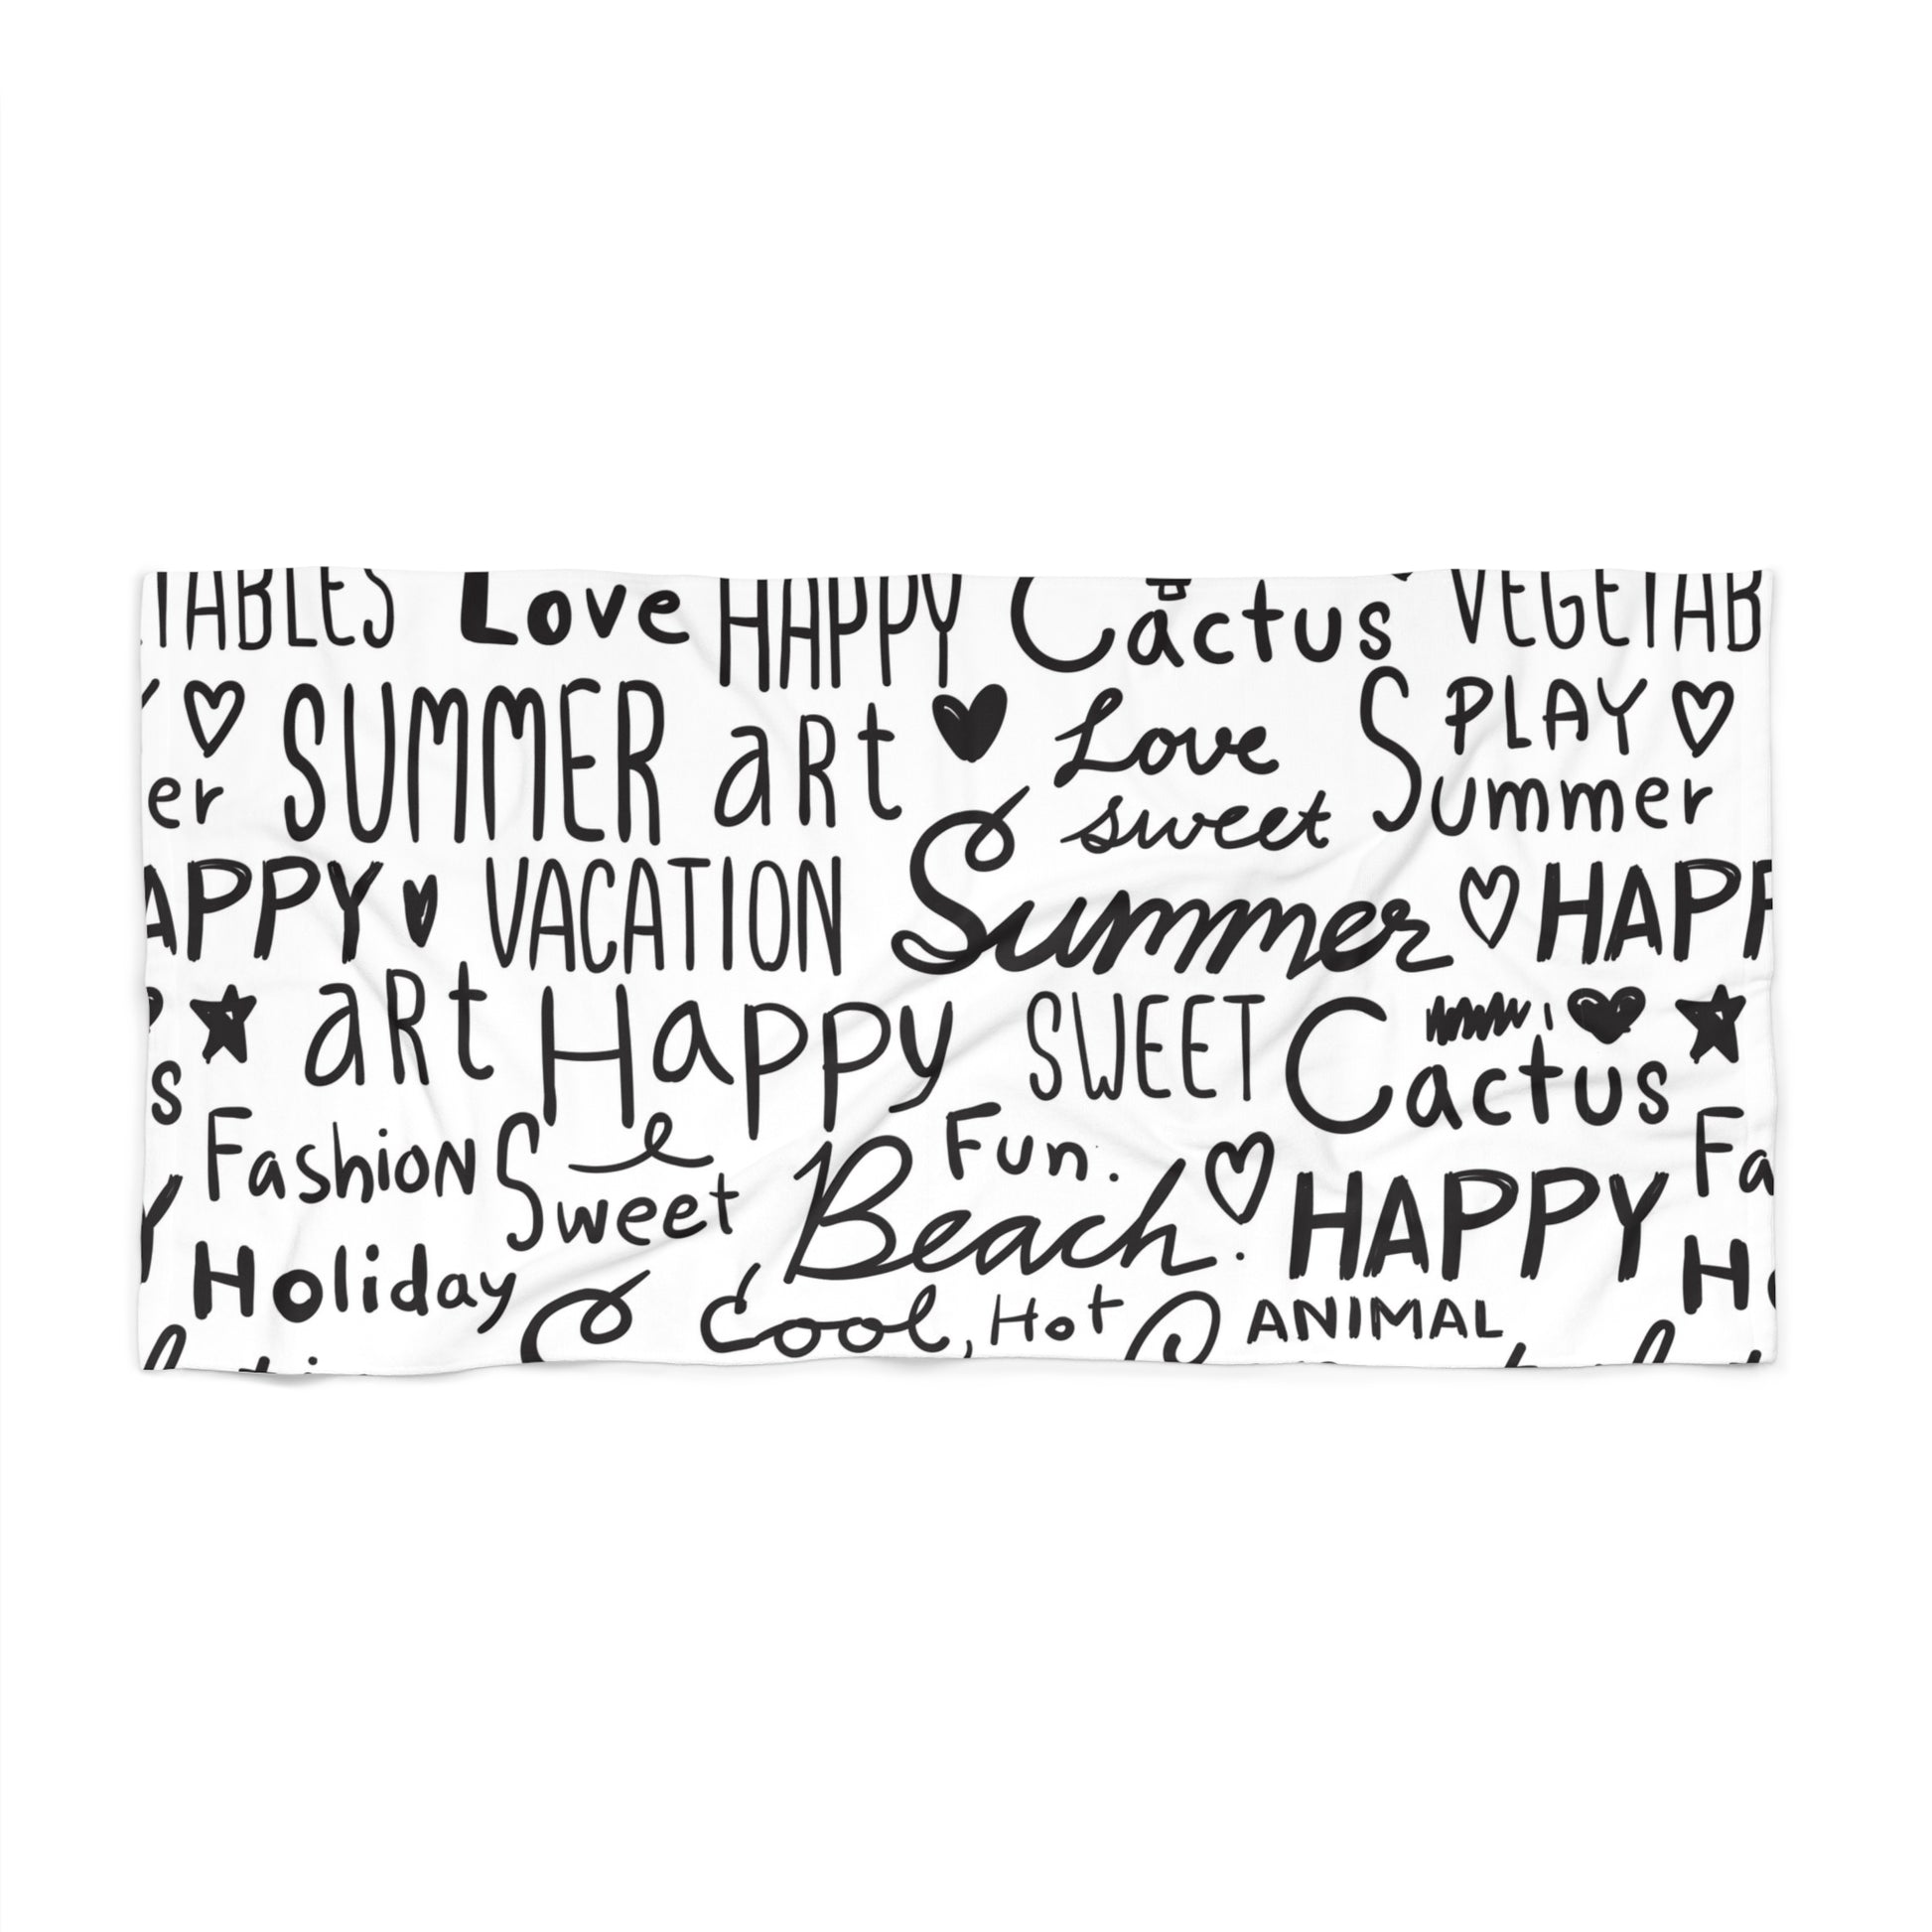 TABLES Love HAPPY Cactus VEGETAB
SUMMER art Love SPLAY
er sweet Summer
APPY VACATION Summer HAPP
art Happy SWEET Cactus
s Fashion Sweet Fun. Fa
Y Holiday Beach. HAPPY H
Cool, Hot ANIMAL